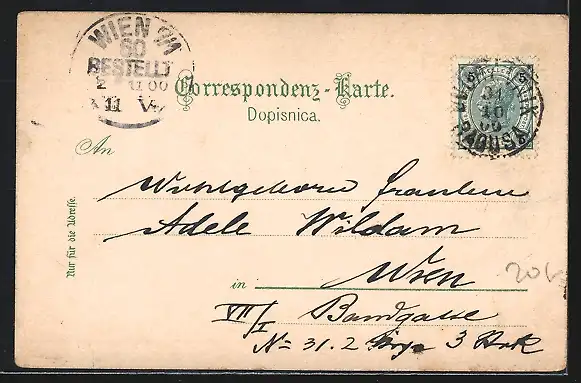 WIEN
60
BESTELLT
2 11 00
VII
Correspondenz-Karte.
Dopisnica.
5 5
31
10
00
RAGUSA
An
Nur für die Adresse.
Wohlgeboren Fräulein
Adele Wildam
in Wien
VII/I Bandgasse
No 31. 2 3
20